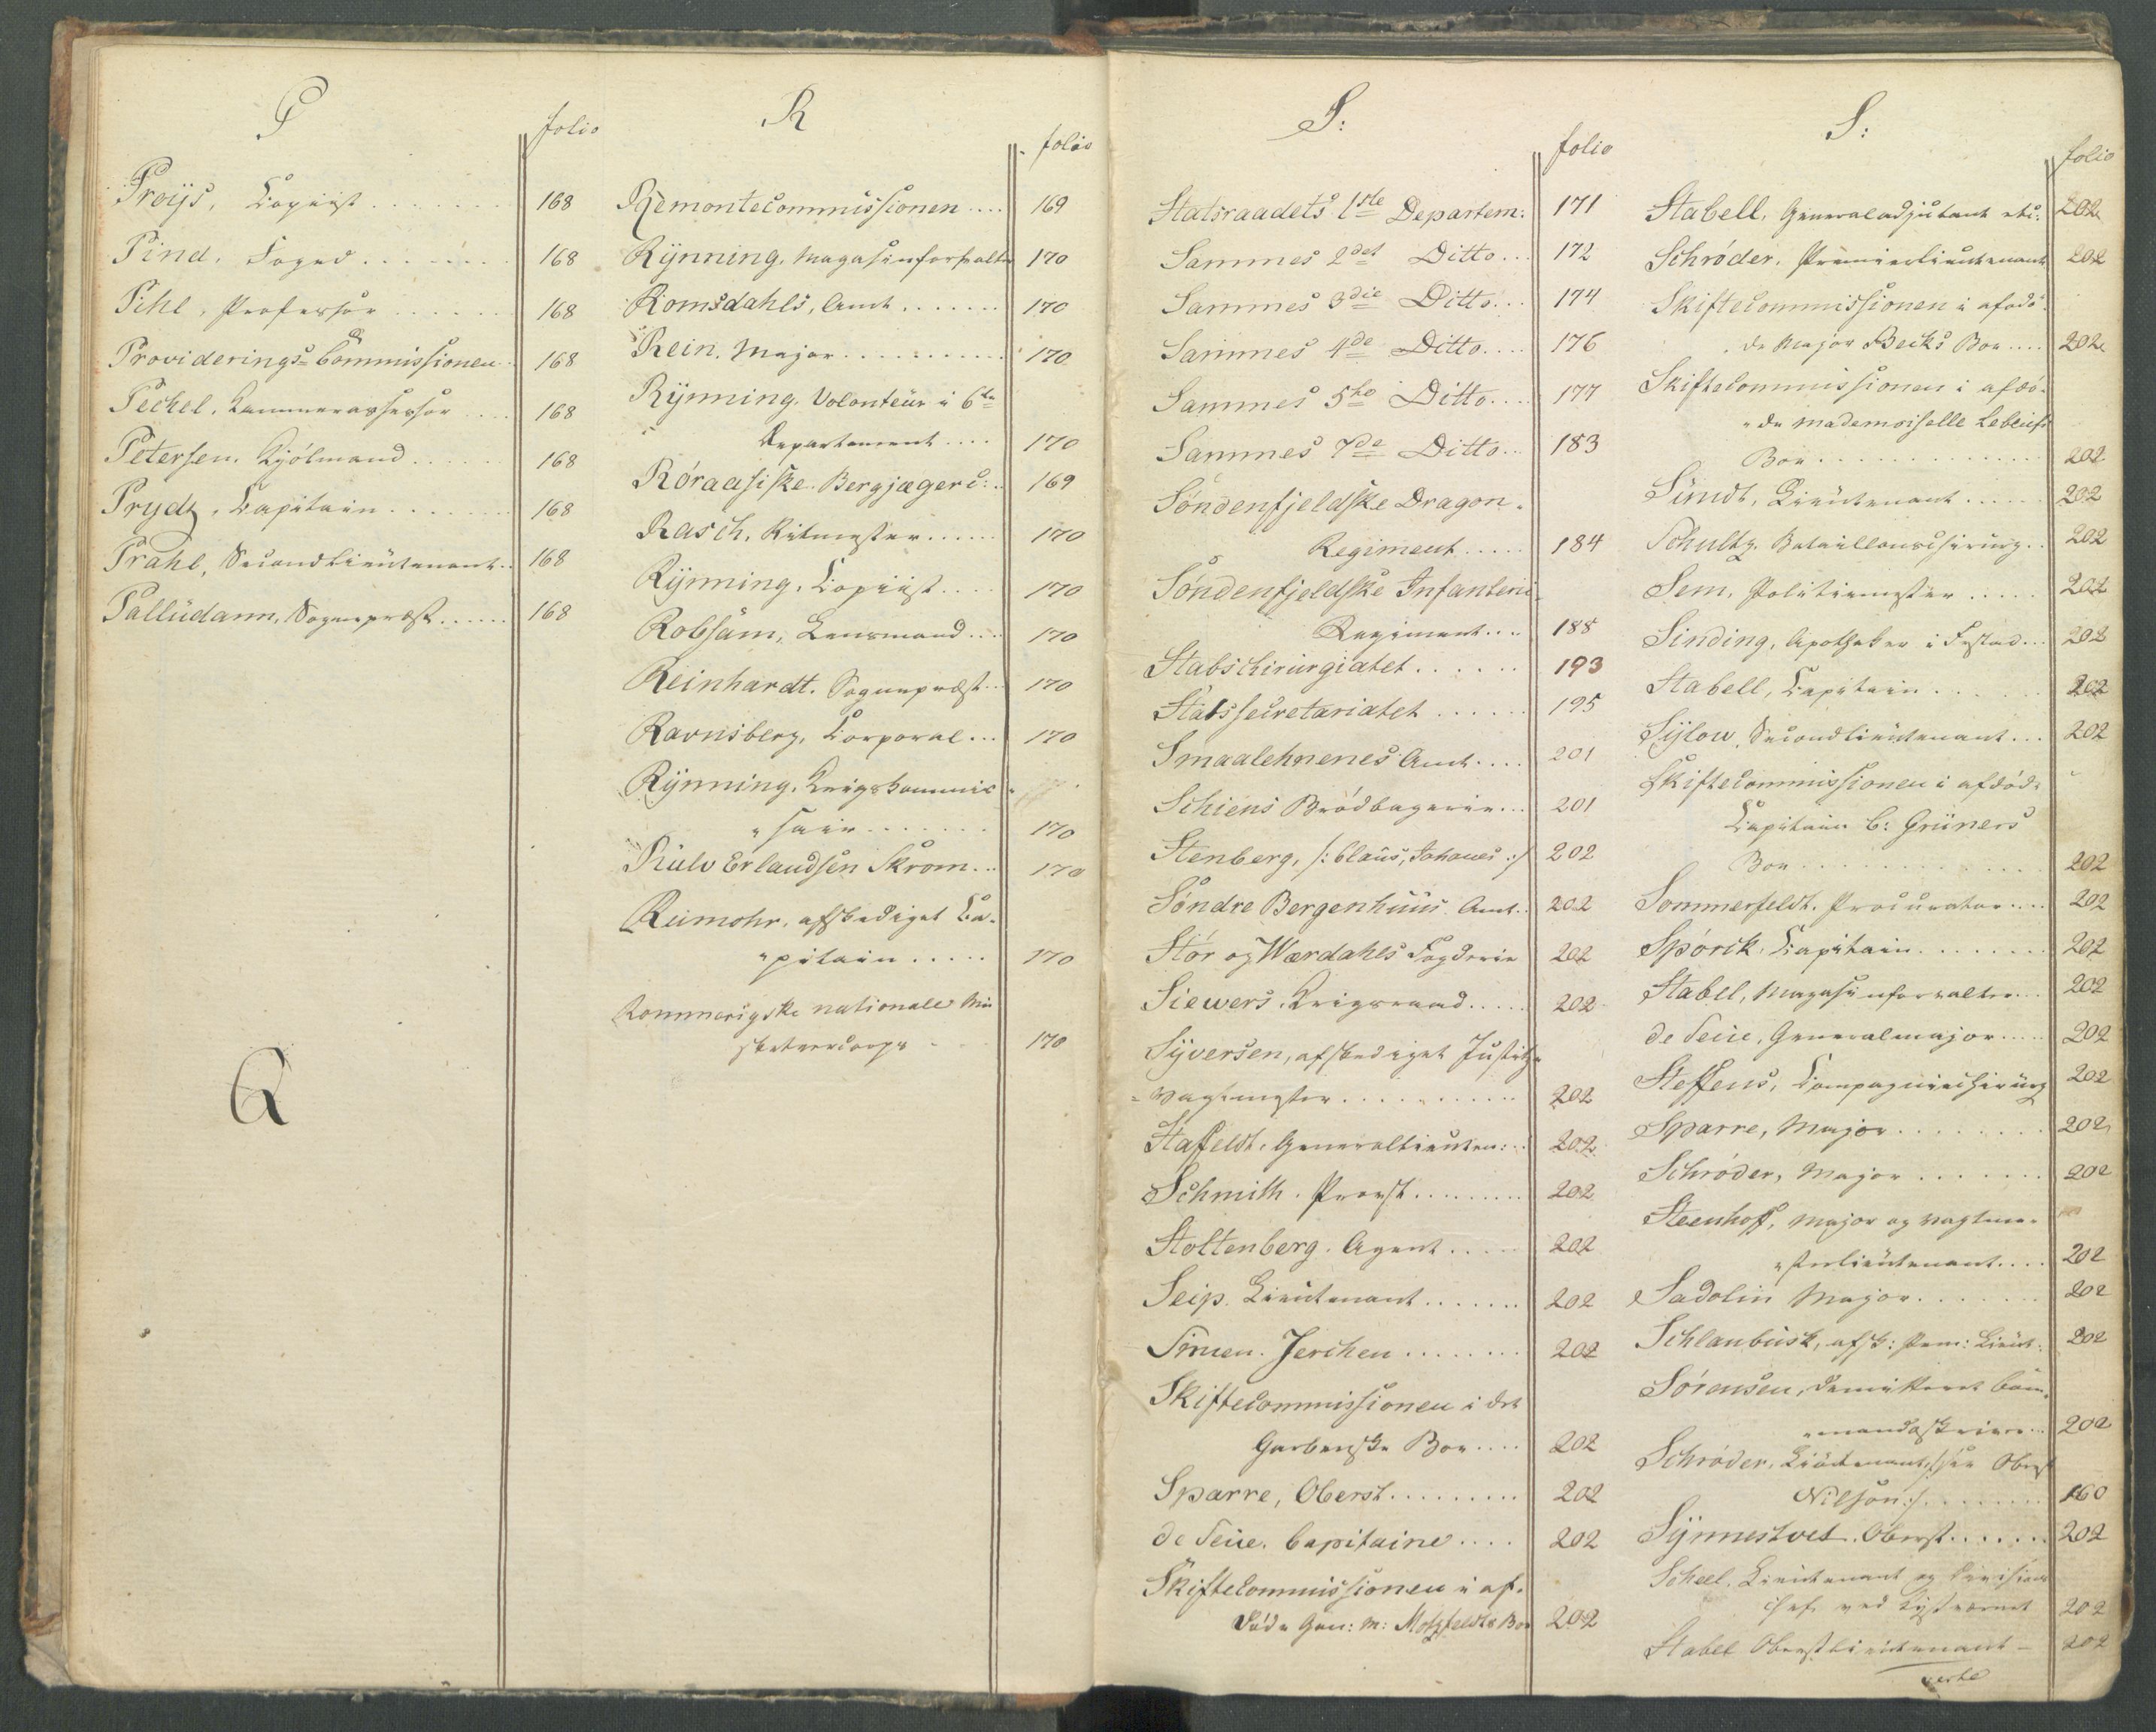 P
folio
Proijs, Copiist ....... 168
Pind, Foged ....... 168
Pihl, Professor ...... 168
Providerings=Commissionen .. 168
Pechel, Kammerassessor .... 168
Petersen, Kjölmand ...... 168
Prydz, Capitain ....... 168
Prahl, Secondlieutenant .. 168
Pallüdann, Sognepræst ...... 168
Q
R
folio
Remontecommissionen .... 169
Rÿnning, Magasinforvalter 170
Romsdahls, Amt ....... 170
Rein, Major .......... 170
Rÿnning, Volonteür i 6te
Departement .... 170
Röraasiske Bergjægerc: .. 169
Rasch, Ritmester ...... 170
Rÿnning, Copiist .... 170
Robsam, Lensmand .... 170
Reinhardt, Sognepræst .. 170
Ravnsberg, Corporal ... 170
Rÿnning, Krigskommis=
"sair ....... 170
Rülv Erlandsen Skrom ... 170
Reimohr, afskediget Ca=
"pitain ..... 170
Rommerigske nationale Mu
sketeercorps - 170
S:
folio
Statsraadets 1ste Departem: 171
Sammes 2det Ditto ... 172
Sammes 3die Ditto ... 174
Sammes 4de Ditto .... 176
Sammes 5te Ditto .... 177
Sammes 7de Ditto ... 183
Söndenfjeldske Dragon=
Regiment ..... 184
Söndenfjeldske Infanteri
Regiment .... 188
Stabschirurgiatet ...... 193
Stabssecretariatet ...... 195
Smaalehnenes Amt .... 201
Schiens Brödbagerie ... 201
Stenberg, /: Claus, Johanes :/ 202
Söndre Bergenhuus Amt .. 202
Stör og Wærdahls Fogderie 202
Siewers, Krigsraad ..... 202
Syversen, afskediget Justitz=
=vagtmester ........... 202
Staffeldt, Generallieuten: .. 202
Schmith, Provst ......... 202
Stoltenberg, Agent ..... 202
Seip, Lieutenant ....... 202
Simen Jerchen ........ 202
Skiftecommissionen i det
Garbenske Boe .... 202
Sparre, Oberst ......... 202
de Seüe, Capitaine .... 202
Skiftecommissionen i af=
döde Gen: M: Motzfeldts Boe 202
S:
folio
Stabell, Generaladjutant etc: 202
Schröder, Premierlieutenant 202
Skiftecommissionen i afdö=
de Major Becks Boe .... 202
Skiftecommissionen i afdö=
"de Mademoiselle
Boe .............. 202
Sündt, Lieutenant ..... 202
Schultz, Bataillonschirurg .. 202
Sem, Politiemester ..... 202
Sinding, Apotheker i ... 202
Stabell, Capitain ...... 202
Sÿlow, Secondlieutenant ... 202
Skiftecommissionen i afdöd=
Capitain C: Grüners
Boe .............. 202
Sommerfeldt, Procurator .... 202
Spörck, Capitain ........ 202
Stabel, Magasinforvalter ... 202
de Seüe, Generalmajor ..... 202
Steffens, Compagniechirürg 202
Sparre, Major ........ 202
Schröder, Major ....... 202
Steenhoff, Major og Vagtme=
"sterlieutenant .... 202
Sadolin Major ....... 202
Schlanbusk, afsk: Prem: Lieut: 202
Sörensen, demitteret Com=
"mandeskriver .. 202
Schröder, Lieutenant, /: see Oberst
Nilson :/ ........ 160
Sÿnnestvet, Oberst ...... 202
Scheel, Lieutenant og Divisions
chef ved Kystværnet 202
Stabel Oberstlieutenant - 202
verte